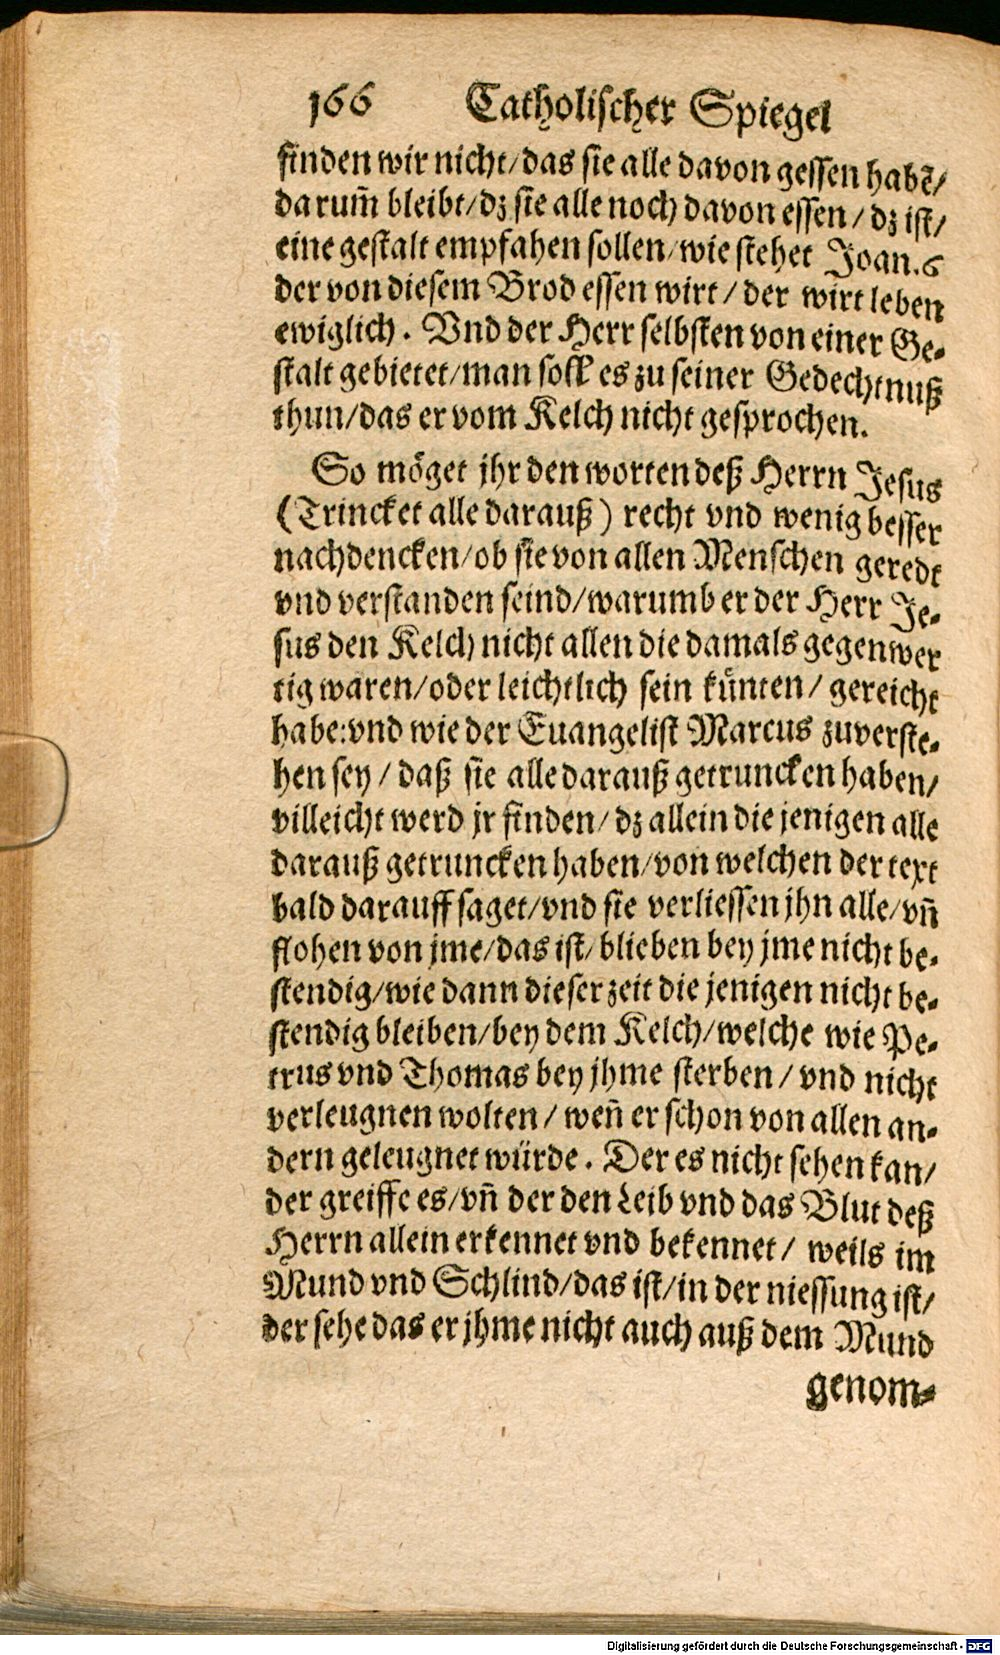 166 Catholischer Spiegel
finden wir nicht/das sie alle davon gessen habẽ/
darum̃ bleibt/dz sie alle noch davon essen/dz ist/
eine gestalt empfahen sollen/wie stehet Joan.6
der von diesem Brod essen wirt/der wirt leben
ewiglich. Vnd der Herr selbsten von einer Ge-
stalt gebietet/man soll es zu seiner Gedechtnuß
thun/das er vom Kelch nicht gesprochen.
So möget jhr den worten deß Herrn Jesus
(Trincket alle darauß) recht vnd wenig besser
nachdencken/ob sie von allen Menschen geredt
vnd verstanden seind/warumb er der Herr Je-
sus den Kelch nicht allen die damals gegenwer
tig waren/oder leichtlich sein künten/gereicht
habe:vnd wie der Euangelist Marcus zuverste-
hen sey/daß sie alle darauß getruncken haben/
villeicht werd jr finden/dz allein die jenigen alle
darauß getruncken haben/von welchen der text
bald darauff saget/vnd sie verliessen jhn alle/vñ
flohen von jme/das ist/blieben bey jme nicht be-
stendig/wie dann dieser zeit die jenigen nicht be-
stendig bleiben/bey dem Kelch/welche wie Pe-
trus vnd Thomas bey jhme sterben/vnd nicht
verleugnen wolten/weñ er schon von allen an-
dern geleugnet würde. Der es nicht sehen kan/
der greiffe es/vñ der den Leib vnd das Blut deß
Herrn allein erkennet vnd bekennet/weils im
Mund vnd Schlind/das ist/in der niessung ist/
der sehe das er jhme nicht auch auß dem Mund
genom-
Digitalisierung gefördert durch die Deutsche Forschungsgemeinschaft - DFG